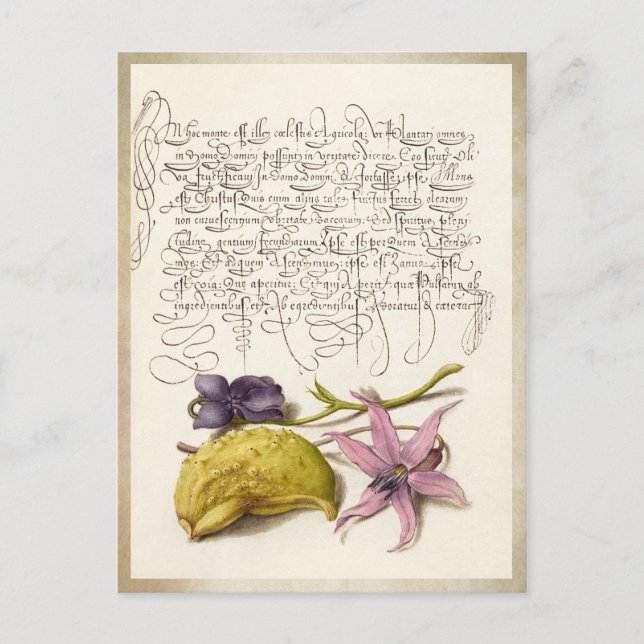 In hoc monte est ille cœlestis Agricola: Ut Plantati omnes
in domo Domini possunt in veritate dicere. Ego sicut Oli
va fructificavi In domo Domini. & fortasse ipse Mons
est Christus. Quis enim alius tales fructus feret olearum
non curvescentium ubertate Baccarum: Sed spiritus pleni
tudine gentium fecundarum Ipse est per quem Ascendi
mus: Et ad quem Ascendimus: ipse est Ianua, ipse
est via: Quæ aperitur: Et qui Aperit: quæ Pulsatur ab
ingredientibus, et Ab egredientibus Adoratur & cætera